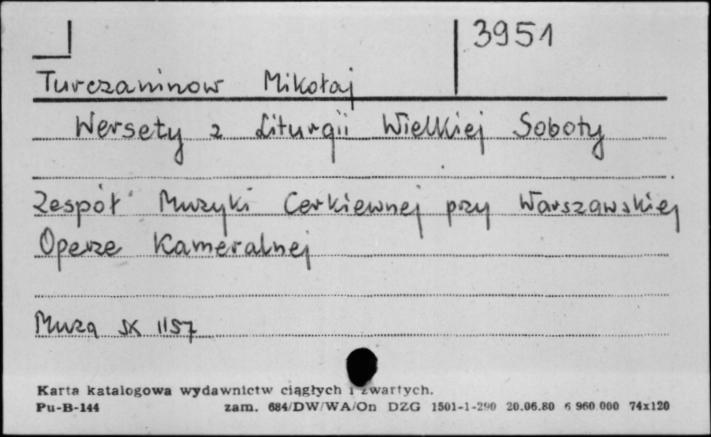 3951
Turczaninow Mikołaj
Wersety z Liturgii Wielkiej Soboty
Zespół Muzyki Cerkiewnej przy Warszawskiej
Operze Kameralnej
Muza SX 1157
Karta katalogowa wydawnictw ciągłych i zwartych.
Pu-B-144 zam. 684/DW/WA/On DZG 1501-1-290 20.06.80 6 960 000 74x120